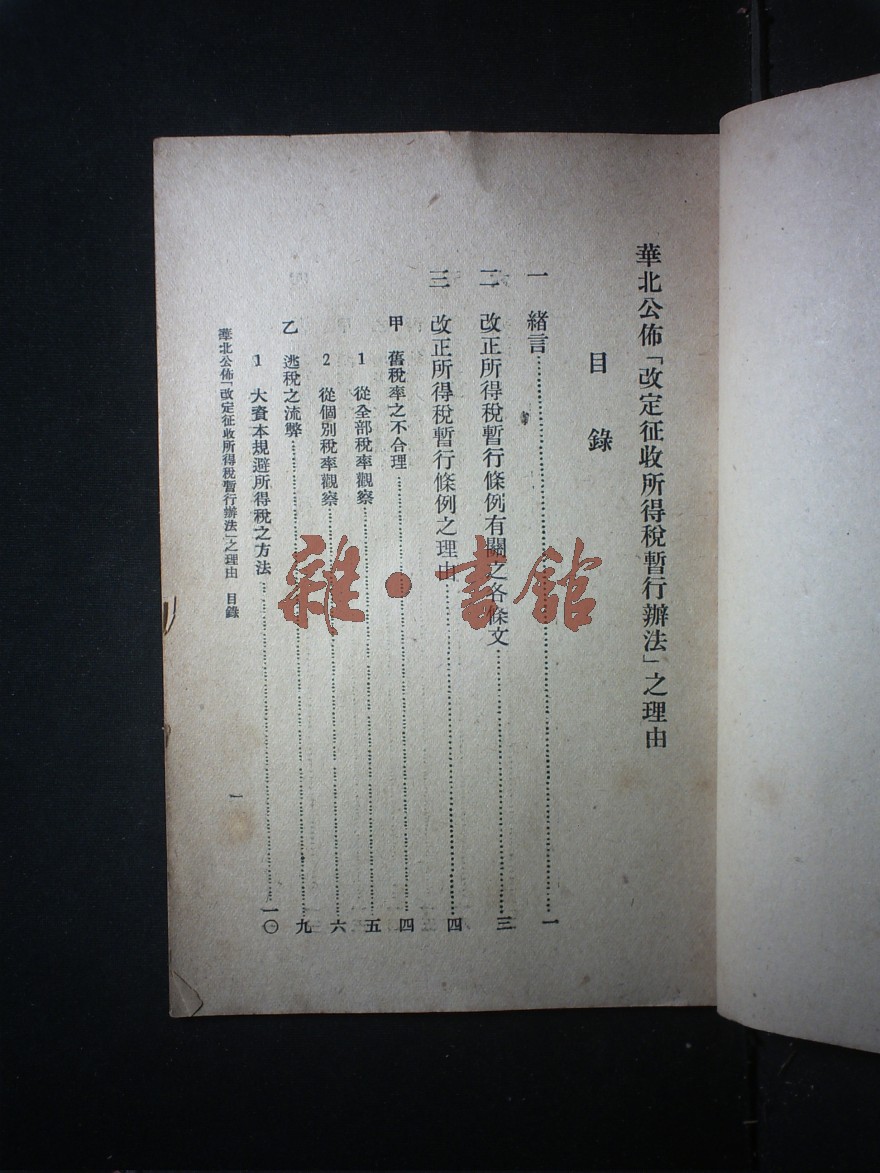 華北公佈「改定征收所得稅暫行辦法」之理由
目錄
一 緒言……一
二 改正所得稅暫行條例有關之各條文……三
三 改正所得稅暫行條例之理由……四
甲 舊稅率之不合理……四
1 從全部稅率觀察……五
2 從個別稅率觀察……六
乙 逃稅之流弊……九
1 大資本規避所得稅之方法……一〇
華北公佈「改定征收所得稅暫行辦法」之理由 目錄
一
雜·書館